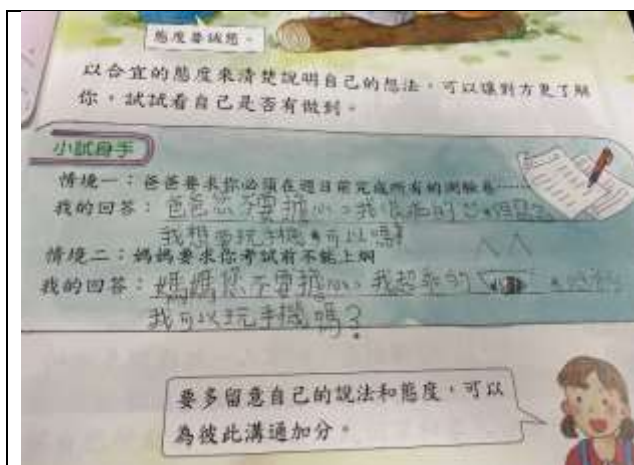 態度要誠懇。
以合宜的態度來清楚說明自己的想法，可以讓對方更了解
你，試試看自己是否有做到。
小試身手
情境一：爸爸要求你必須在週日前完成所有的測驗卷……
我的回答：爸爸您不要擔心，我很
我想要玩手機可以嗎？
情境二：媽媽要求你考試前不能上網
我的回答：媽媽您不要擔心，我超乖的
我可以玩手機嗎？
要多留意自己的說法和態度，可以
為彼此溝通加分。